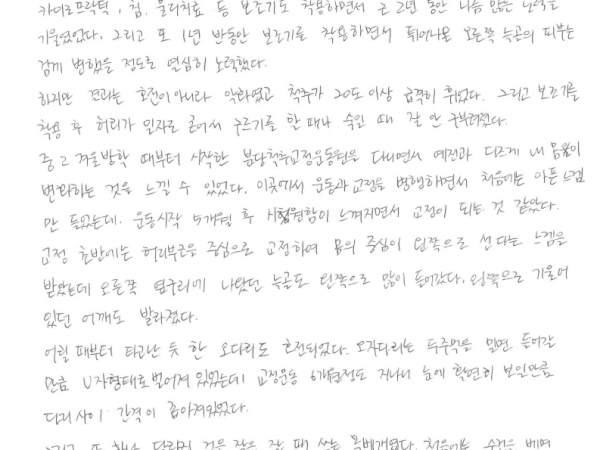 카이로프락틱, 침, 물리치료 등 보조기도 착용하면서 근 2년 동안 나름 많은 노력을
기울였었다. 그리고 또 1년 반동안 보조기를 착용하면서 튀어나온 오른쪽 늑골의 피부는
검게 변했을 정도로 열심히 노력했다.
하지만 결과는 호전이 아니라 악화였고 척추가 20도 이상 급격히 휘었다. 그리고 보조기를
착용 후 허리가 일자로 굳어서 구르기를 한 때나 숙일 때 잘 안 구부려졌다.
중2 겨울방학 때부터 시작한 분당척추교정운동원을 다니면서 예전과 다르게 내 몸이
변화하는 것을 느낄 수 있었다. 이곳에서 운동과 교정을 병행하면서 처음에는 아픈느낌
만 들었는데. 운동시작 5개월 후 시원함이 느껴지면서 교정이 되는 것 같았다.
교정 초반에는 허리부근을 중심으로 교정하여 몸의 중심이 왼쪽으로 선다는 느낌을
받았는데 오른쪽 옆구리에 나왔던 늑골도 왼쪽으로 많이 들어갔다. 왼쪽으로 기울어
있던 어깨도 발라졌다.
어릴 때부터 타고난 듯 한 오다리도 호전되었다. 오자다리는 두주먹을 밀면 들어갈
만큼 U자형태로 벌어져 있었는데 교정운동 6개월정도 지나니 눈에 확연히 보일만큼
다리사이 간격이 좁아져있었다.
그리고 또 하나 달라진 것은 잠을 잘 때 쓰는 목베개였다. 처음에는 수건을 베면